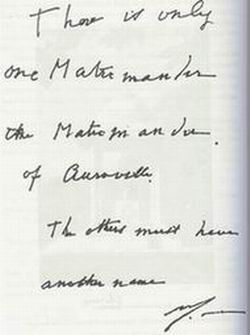 There is only
one Matrimandir
the Matrimandir
of Auroville.
The others must have
another name